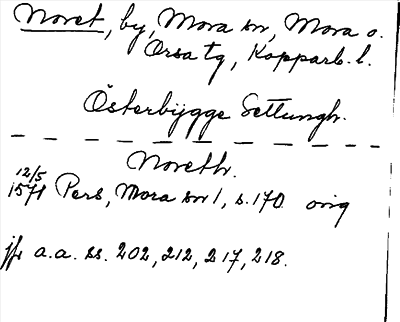 Noret, by, Mora sn, Mora o.
Orsa tg, Kopparb. l.
Österbÿgge Settungh.
Noreth.
12/5
1571 Pers, Mora sn 1, s. 170 orig
jfr a.a. ss. 202, 212, 217, 218.